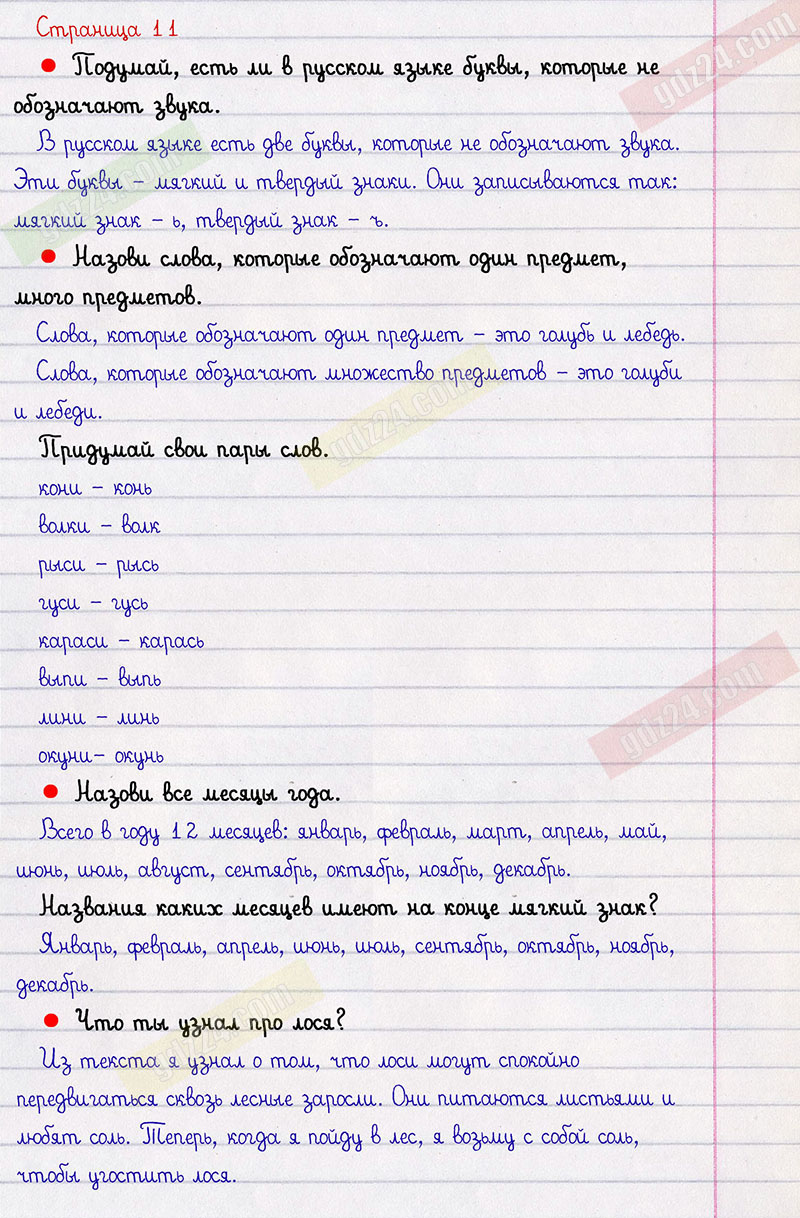 Страница 11
• Подумай, есть ли в русском языке буквы, которые не
обозначают звука.
В русском языке есть две буквы, которые не обозначают звука.
Эти буквы – мягкий и твердый знаки. Они записываются так:
мягкий знак – ь, твердый знак – ъ.
• Назови слова, которые обозначают один предмет,
много предметов.
Слова, которые обозначают один предмет – это голубь и лебедь.
Слова, которые обозначают множество предметов – это голуби
и лебеди.
Придумай свои пары слов.
кони – конь
волки – волк
рыси – рысь
гуси – гусь
караси – карась
выпи – выпь
лини – линь
окуни– окунь
• Назови все месяцы года.
Всего в году 12 месяцев: январь, февраль, март, апрель, май,
июнь, июль, август, сентябрь, октябрь, ноябрь, декабрь.
Названия каких месяцев имеют на конце мягкий знак?
Январь, февраль, апрель, июнь, июль, сентябрь, октябрь, ноябрь,
декабрь.
• Что ты узнал про лося?
Из текста я узнал о том, что лоси могут спокойно
передвигаться сквозь лесные заросли. Они питаются листьями и
любят соль. Теперь, когда я пойду в лес, я возьму с собой соль,
чтобы угостить лося.
gdz24.com
gdz24.com
gdz24.com
gdz24.com
gdz24.com